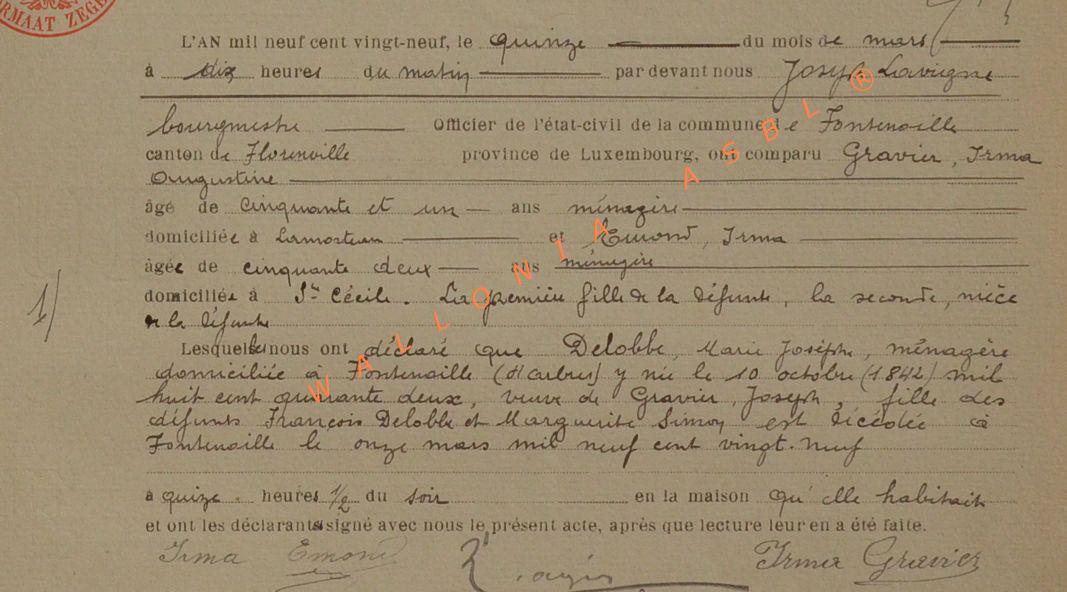 RMAAT ZEGE
L'AN mil neuf cent vingt-neuf, le quinze du mois de mars
à dix heures du matin par devant nous Joseph Lavigne
bourgmestre Officier de l'état-civil de la commune de Fontenoille
canton de Florenville province de Luxembourg, ont comparu Gravier, Irma
Augustine
âgé de cinquante et un ans ménagère
domiciliée à Lamorteau et Emond, Irma
âgée de cinquante deux ans ménagère
domiciliée à Ste Cécile. La première fille de la défunte, la seconde, nièce
de la défunte
1/
Lesquelles nous ont déclaré que Delobbe, Marie Josèphe, ménagère
domiciliée à Fontenoille () y née le 10 octobre (1842) mil
huit cent quarante deux, veuve de Gravier, Joseph, fille des
défunts François Delobbe et Marguerite Simon est décédée à
Fontenoille le onze mars mil neuf cent vingt-neuf
à quize heures 1/2 du soir en la maison qu'elle habitait
et ont les déclarants signé avec nous le présent acte, après que lecture leur en a été faite.
Irma Emond Irma Gravier
WALLONIA ASBL ®